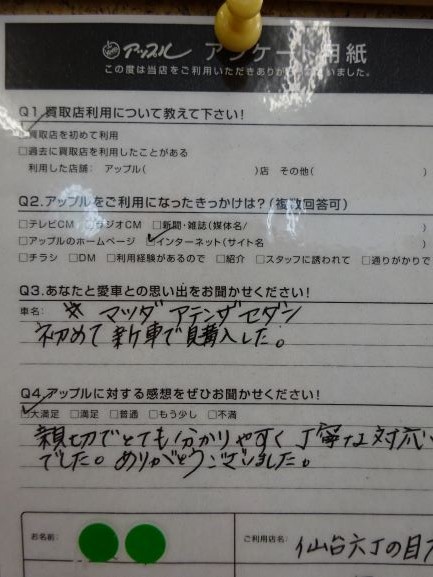 アップル アンケート用紙
この度は当店をご利用いただきありがとうございました。
Q1.買取店利用について教えて下さい!
買取店を初めて利用
□過去に買取店を利用したことがある
利用した店舗: アップル( )店 その他( )
Q2.アップルをご利用になったきっかけは?(複数回答可)
□テレビCM □ラジオCM □新聞・雑誌(媒体名/ )
□アップルのホームページ ☑インターネット(サイト名 )
□チラシ □DM □利用経験があるので □紹介 □スタッフに誘われて □通りがかりで
Q3.あなたと愛車との思い出をお聞かせください!
車名: マツダ アテンザセダン
初めて新車で購入した。
Q4.アップルに対する感想をぜひお聞かせください!
☑大満足 □満足 □普通 □もう少し □不満
親切でとても分かりやすく丁寧な対応
でした。ありがとうございました。
お名前:
ご利用店名: 仙台六丁の目